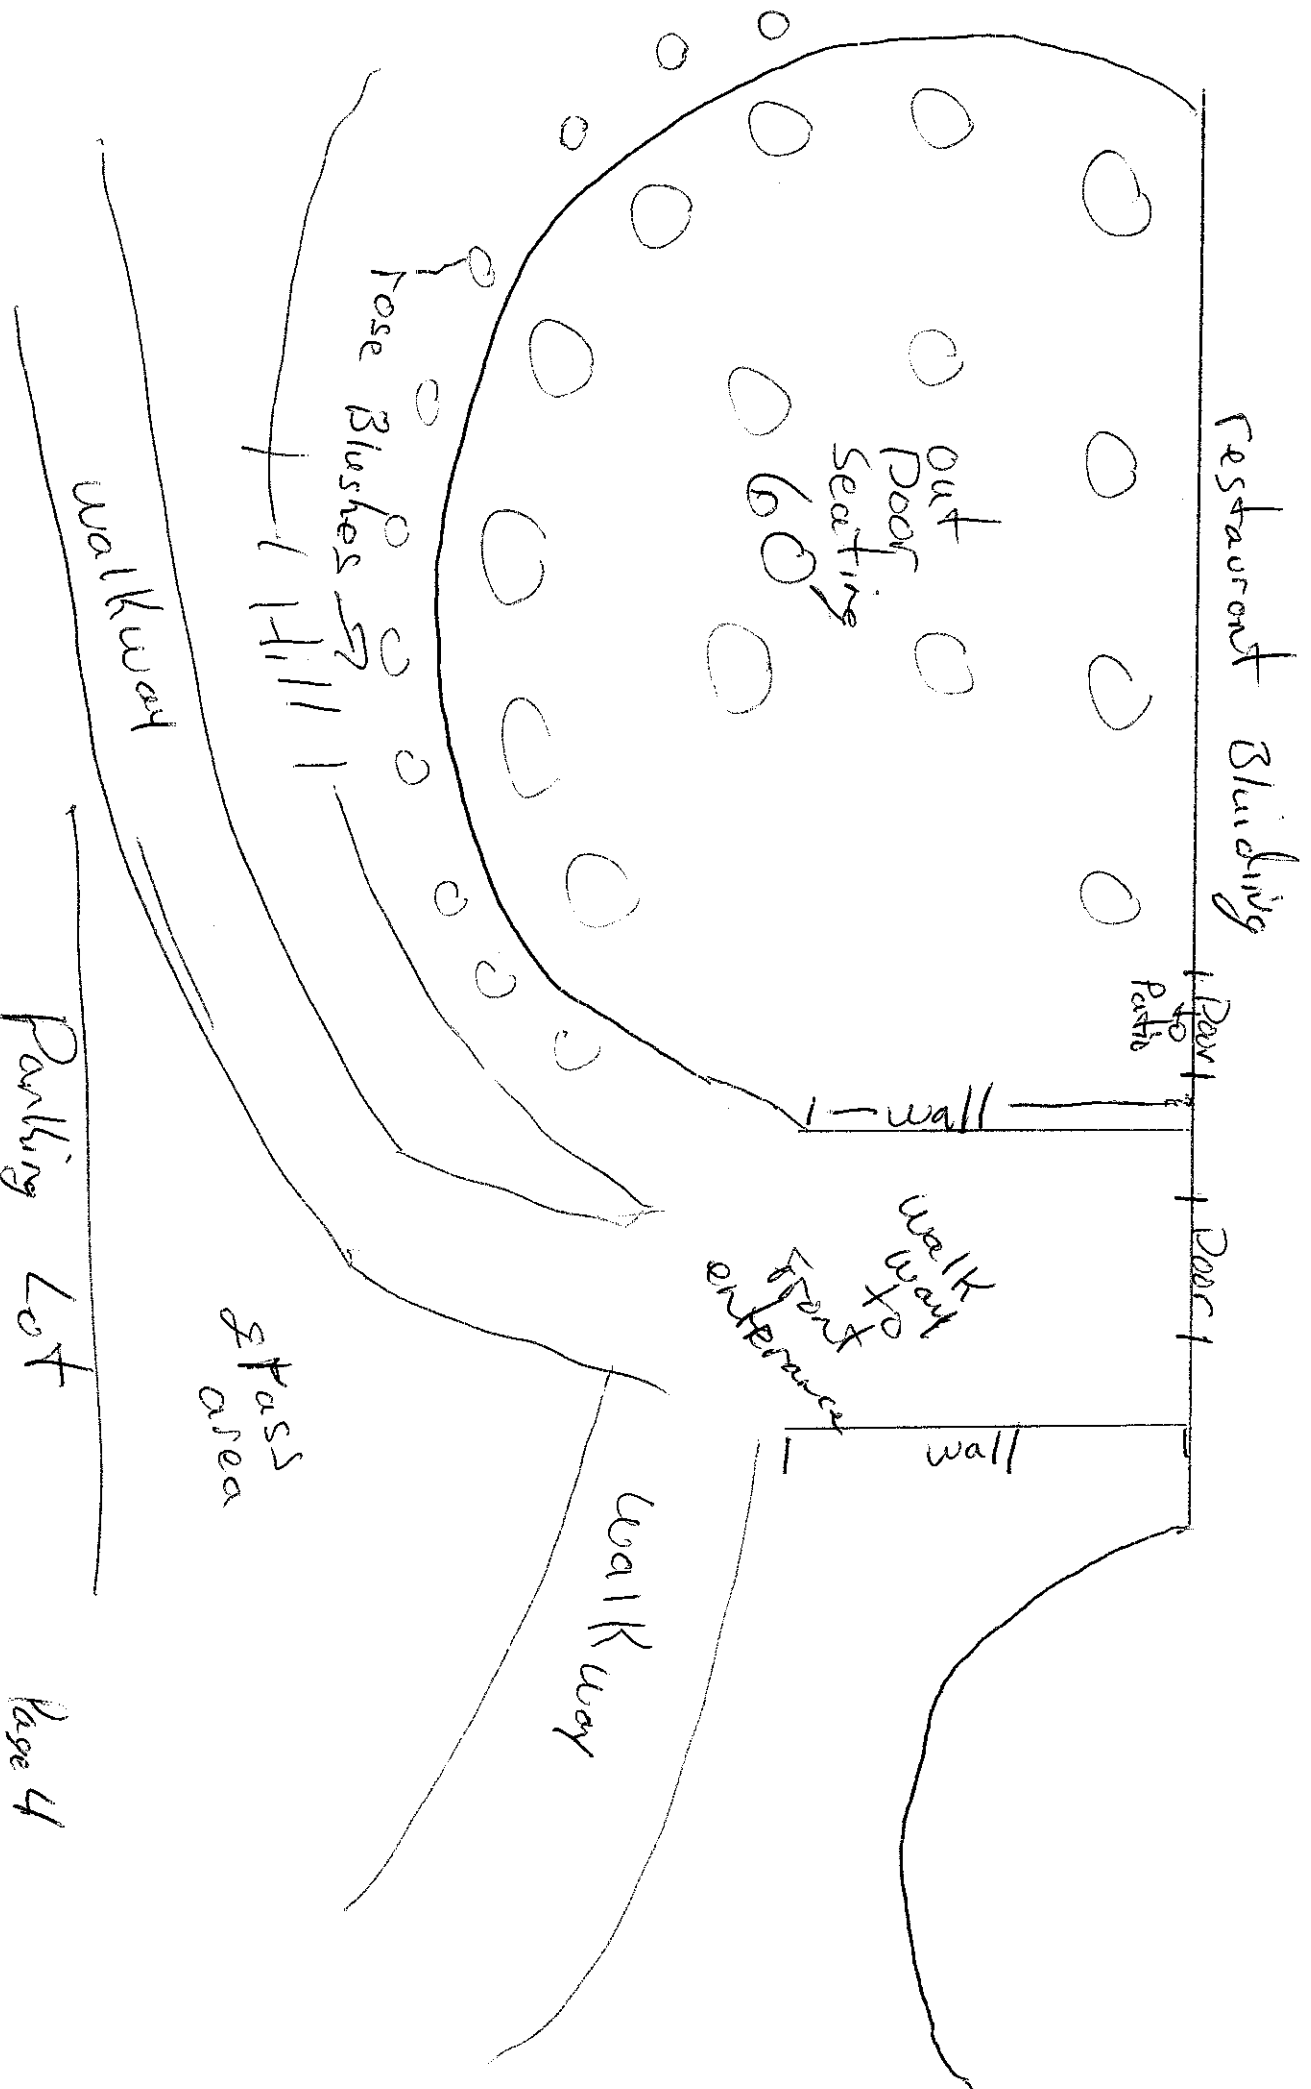 restauront Bluiding
Door
to
Patio
Door
out
Door
Seating
60
wall
walk
way
to
front
enterance
wall
rose Blushes
Hill
walkway
walkway
grass
area
Parking Lot
Page 4